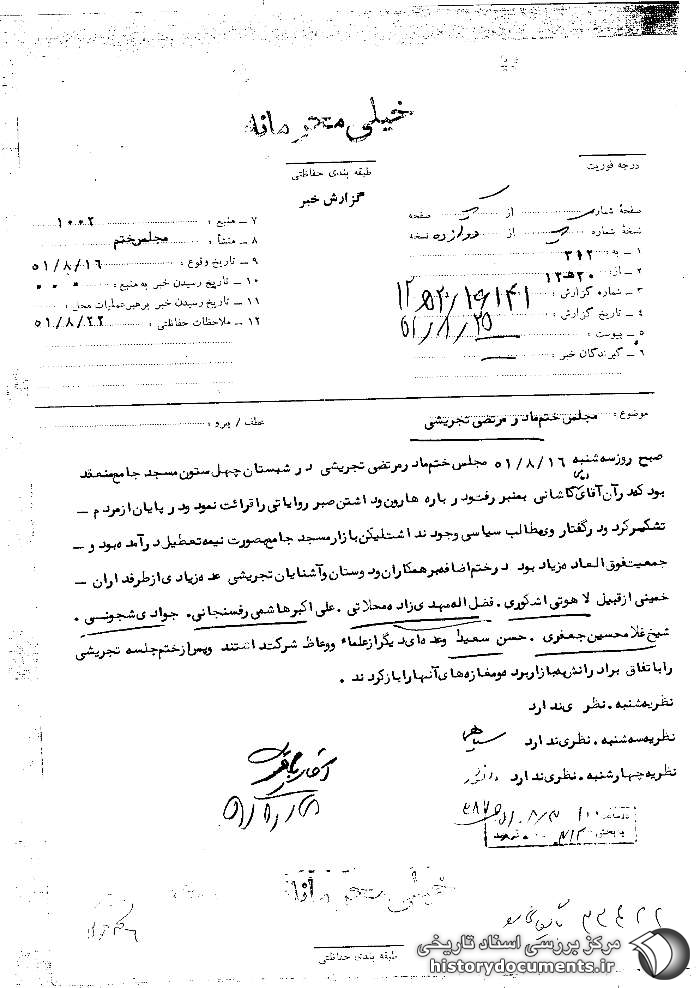 خیلی محرمانه
طبقه بندی حفاظتی
درجه فوریت
گزارش خبر
صفحهٔ شماره از صفحه
نسخهٔ شماره از دوازده نسخه
۱ – به : ۳۱۲
۲ – از : ۲۰ ه‍ ۱۲
۳ – شماره گزارش :
۴ – تاریخ گزارش : ۵۱/۸/۲۵
۵ – پیوست :
۶ – گیرندگان خبر :
۷ – منبع : ۱۰۰۲
۸ – منشأ : مجلس ختم
۹ – تاریخ وقوع : ۵۱/۸/۱۶
۱۰ – تاریخ رسیدن خبر به منبع :
۱۱ – تاریخ رسیدن خبر برهبر عملیات محل :
۱۲ – ملاحظات حفاظتی : ۵۱/۸/۲۲
موضوع : مجلس ختم مادر مرتضی تجریشی عطف / پیرو :
صبح روز سه شنبه ۵۱/۸/۱۶ مجلس ختم مادر مرتضی تجریشی در شبستان چهل ستون مسجد جامع منعقد
بود که در آن آقای کاشانی بمنبر رفت و درباره هارون و داشتن صبر روایاتی را قرائت نمود و در پایان از مردم –
تشکر کرد و در گفتار وی مطالب سیاسی وجود نداشت لیکن بازار مسجد جامع بصورت نیمه تعطیل درآمده بود و –
جمعیت فوق العاده زیاد بود در ختم اضافه بر همکاران و دوستان و آشنایان تجریشی عده زیادی از طرفداران –
خمینی از قبیل لاهوتی اشکوری . فضل اله مهدی زاده محلاتی . علی اکبر هاشمی رفسنجانی . جوادی شجونسی .
شیخ غلامحسین جعفری . حسن سعید و عده ای دیگر از علماء و وعاظ شرکت داشتند و پس از ختم جلسه تجریشی
را با تفاق برادرانش به بازار برده و مغازه های آنها را باز کردند .
نظریه شنبه . نظر ی ندارد
نظریه سه شنبه . نظری ندارد
نظریه چهارشنبه . نظری ندارد
خیلی محرمانه
طبقه بندی حفاظتی
مرکز بررسی اسناد تاریخی
historydocuments.ir